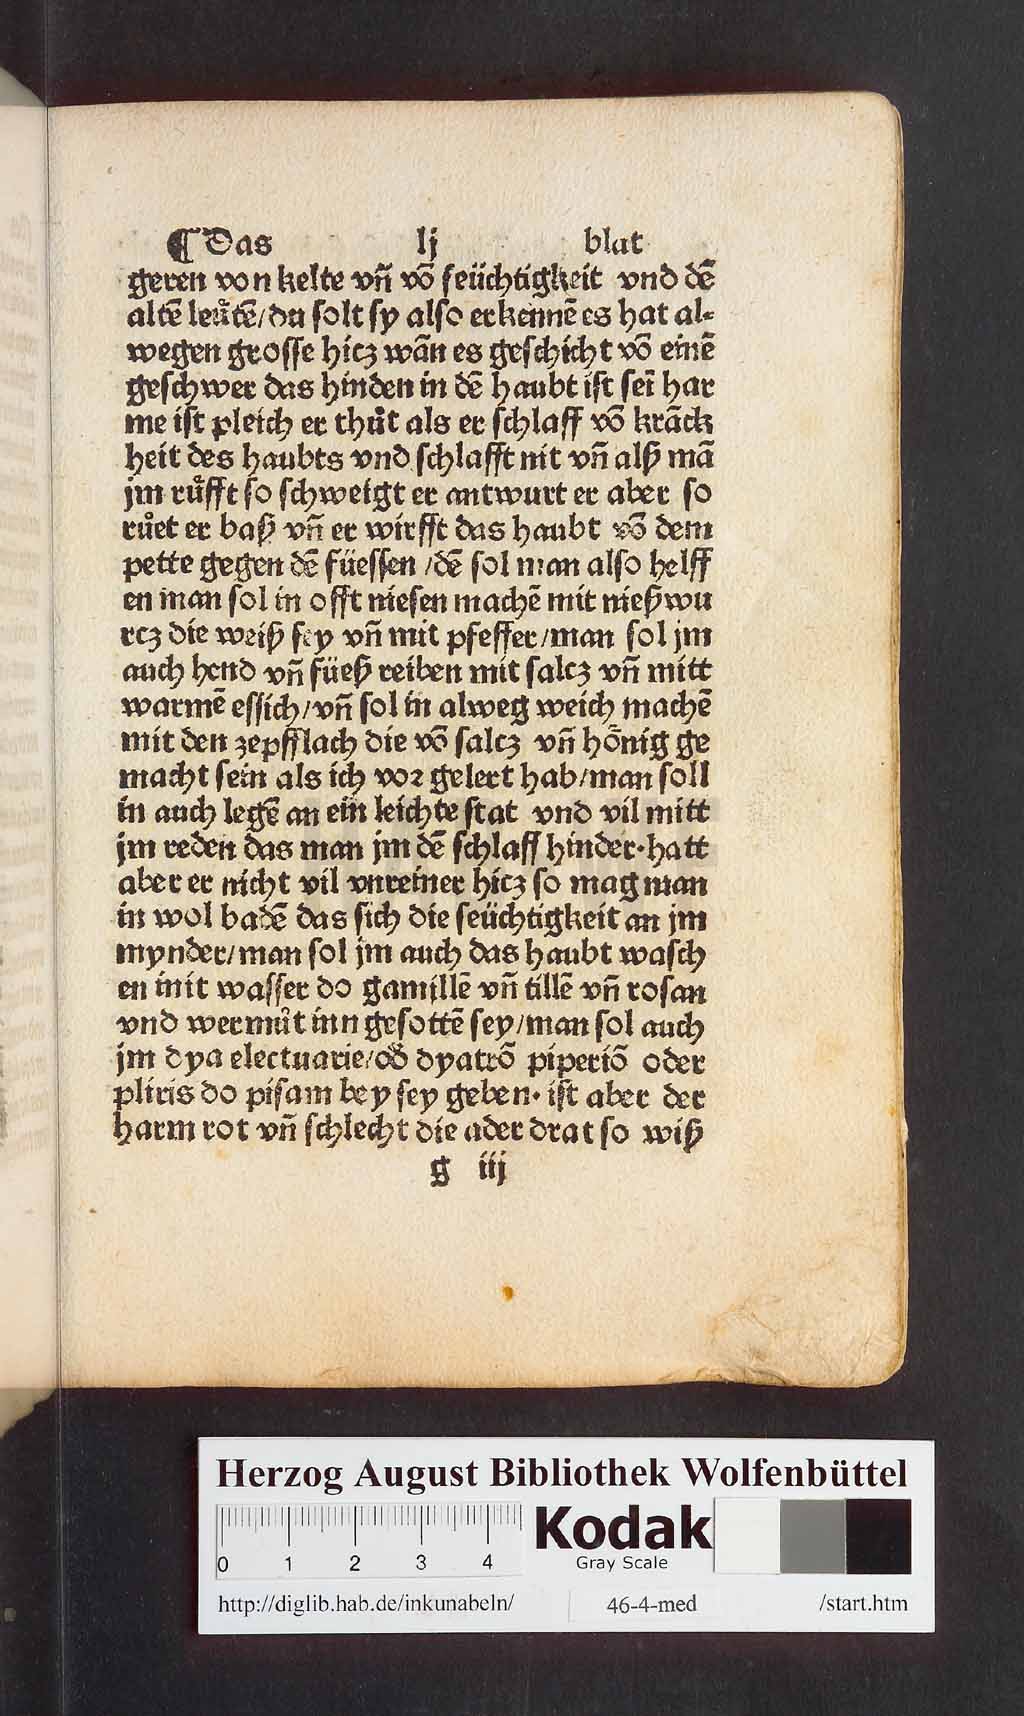 ¶ Das lj blat
geren von kelte vn̄ vō feüchtigkeit vnd dē
altē leuͤtē/du solt sy also erkennē es hat al⸗
wegen grosse hicz wān es geschicht vō einē
geschwer das hinden in dē haubt ist sei̅ har
me ist pleich er thuͦt als er schlaff vō krāck
heit des haubts vnd schlafft nit vn̄ alß mā
jm ruͤfft so schweigt er antwurt er aber so
ruͦet er baß vn̄ er wirfft das haubt vō dem
pette gegen dē füessen /dē sol man also helff
en man sol in offt niesen machē mit nießwu
rcz die weiß sey vn̄ mit pfeffer/man sol jm
auch hend vn̄ füeß reiben mit salcz vn̄ mitt
warmē essich/vn̄ sol in alweg weich machē
mit den zepfflach die vō salcz vn̄ hoͤnig ge
macht sein als ich vor gelert hab/man soll
in auch legē an ein leichte stat vnd vil mitt
jm reden das man jm dē schlaff hinder·hatt
aber er nicht vil vnreiner hicz so mag man
in wol badē das sich die feüchtigkeit an jm
mynder/man sol jm auch das haubt wasch
en mit wasser do gamillē vn̄ tillē vn̄ rosan
vnd wermuͦt inn gesottē sey/man sol auch
jm dya electuarie/od̓ dyatrō piperiō oder
pliris do pisam bey sey geben· ist aber der
harm rot vn̄ schlecht die ader drat so wiß
g iij
Herzog August Bibliothek Wolfenbüttel
0 1 2 3 4
Kodak
Gray Scale
http://diglib.hab.de/inkunabeln/ 46-4-med /start.htm